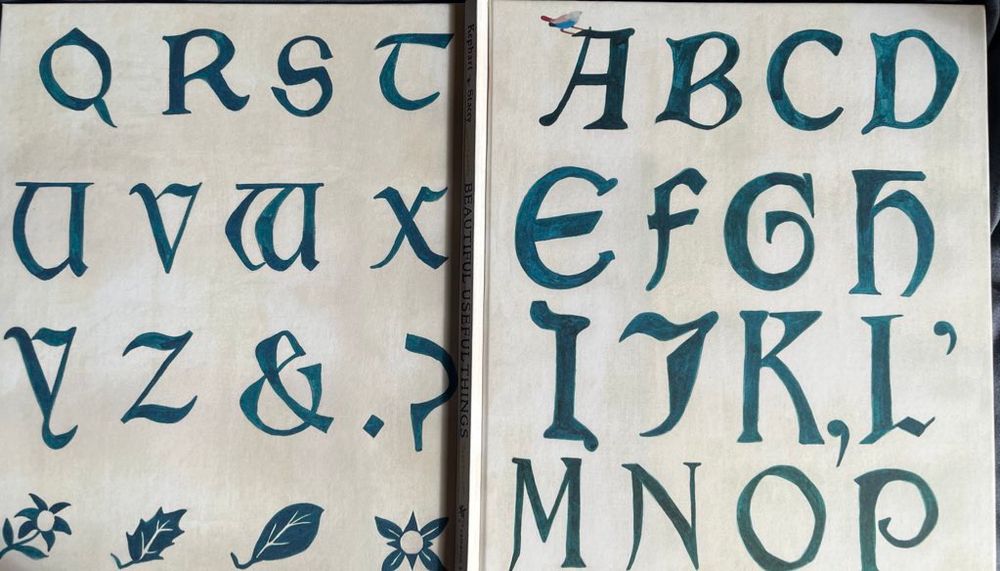 Q R S T
U V W X
Y Z & . ?
Kephart • Stacey
BEAUTIFUL USEFUL THINGS
A B C D
E F G H
I J K , L '
M N O P